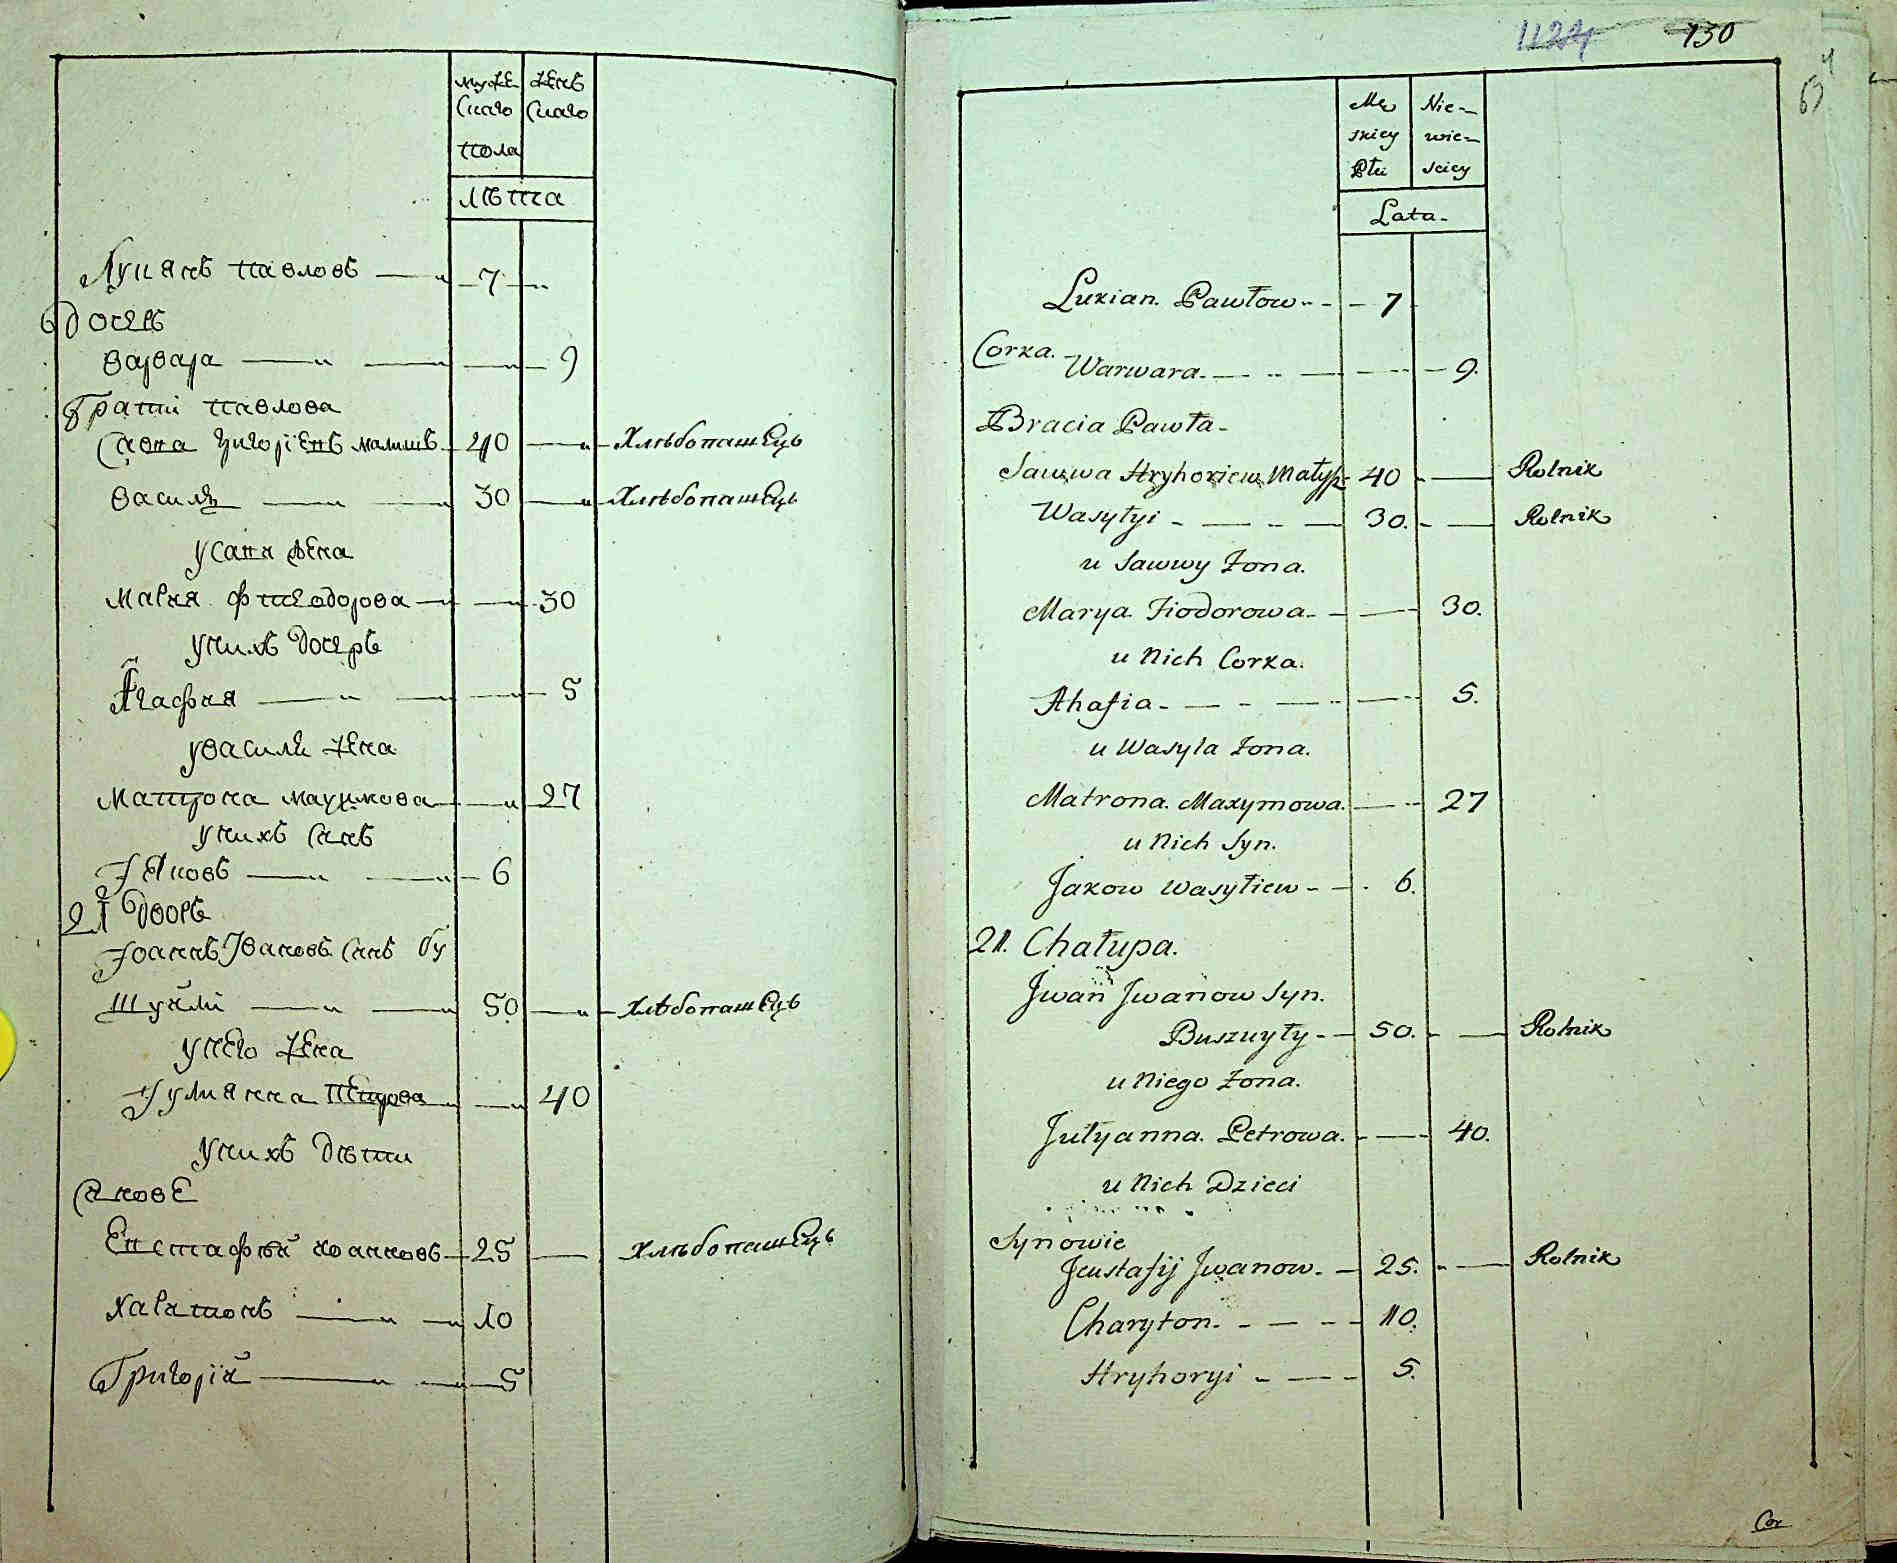 муже женъ
скаго скаго
пола
лѣта
Лукянъ Павловъ 7
дочеръ
варвара 9
Брати Павлова
Савва Григоріевъ малишъ 40 Хлѣбопашецъ
василѣ 30 Хлѣбопашецъ
усавы жена
Мария Фтеодорова 30
унихъ дочеръ
Агафия 5
увасилѣ жена
Матрона Махимова 27
унихъ синъ
Іяковъ 6
21 дворъ
Іоаннъ Івановъ синъ бу
шуйли 50 Хлѣбопашецъ
унего жена
Іулиянна Петрова 40
унихъ дѣти
Синове
Евстафий иоанновъ 25 Хлѣбопашецъ
Харитонъ 10
Григорій 5
1124 130
Mę Nie-
skiey wie-
Płci sciey
Lata.
Lukian Pawłow 7
Corka.
Warwara 9.
Bracia Pawła
Sawwa Hryhoriew Małysz 40 Rolnik
Wasyłyi 30. Rolnik
u Sawwy Żona.
Marya Fiodorowa 30.
u Nich Corka.
Ahafia 5.
u Wasyla Żona.
Matrona Maxymowa. 27
u Nich Syn.
Jakow Wasyliew 6.
21. Chałupa.
Jwan Jwanow Syn.
Buszuyły 50. Rolnik
u Niego Żona.
Julyanna Petrowa. 40.
u Nich Dzieci
Synowie
Jeustafij Jwanow. 25. Rolnik
Charyton. 10.
Hryhoryi 5.
Cor